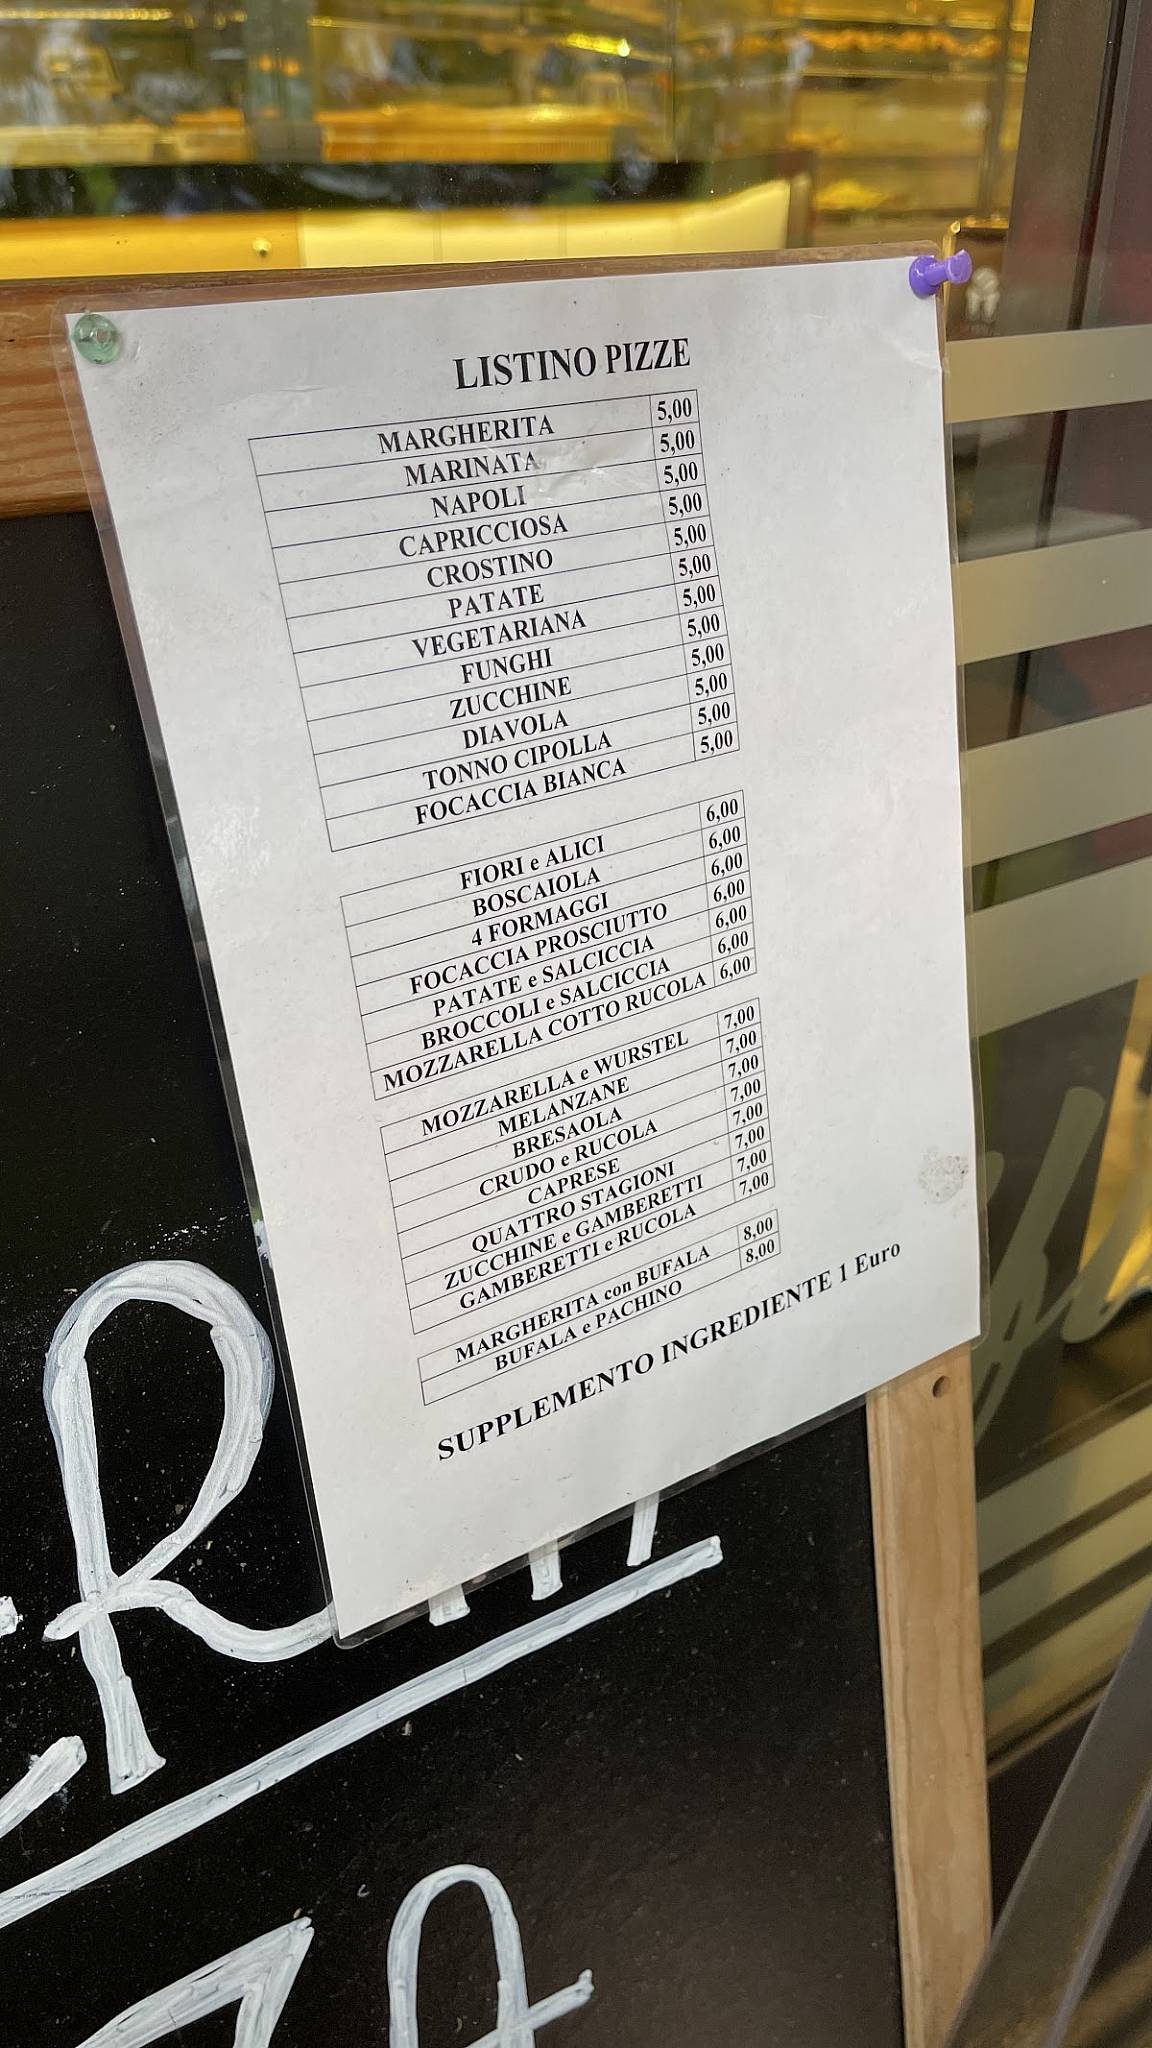 LISTINO PIZZE
MARGHERITA 5,00
MARINATA 5,00
NAPOLI 5,00
CAPRICCIOSA 5,00
CROSTINO 5,00
PATATE 5,00
VEGETARIANA 5,00
FUNGHI 5,00
ZUCCHINE 5,00
DIAVOLA 5,00
TONNO CIPOLLA 5,00
FOCACCIA BIANCA 5,00
FIORI e ALICI 6,00
BOSCAIOLA 6,00
4 FORMAGGI 6,00
FOCACCIA PROSCIUTTO 6,00
PATATE e SALCICCIA 6,00
BROCCOLI e SALCICCIA 6,00
MOZZARELLA COTTO RUCOLA 6,00
MOZZARELLA e WURSTEL 7,00
MELANZANE 7,00
BRESAOLA 7,00
CRUDO e RUCOLA 7,00
CAPRESE 7,00
QUATTRO STAGIONI 7,00
ZUCCHINE e GAMBERETTI 7,00
GAMBERETTI e RUCOLA 7,00
MARGHERITA con BUFALA 8,00
BUFALA e PACHINO 8,00
SUPPLEMENTO INGREDIENTE 1 Euro